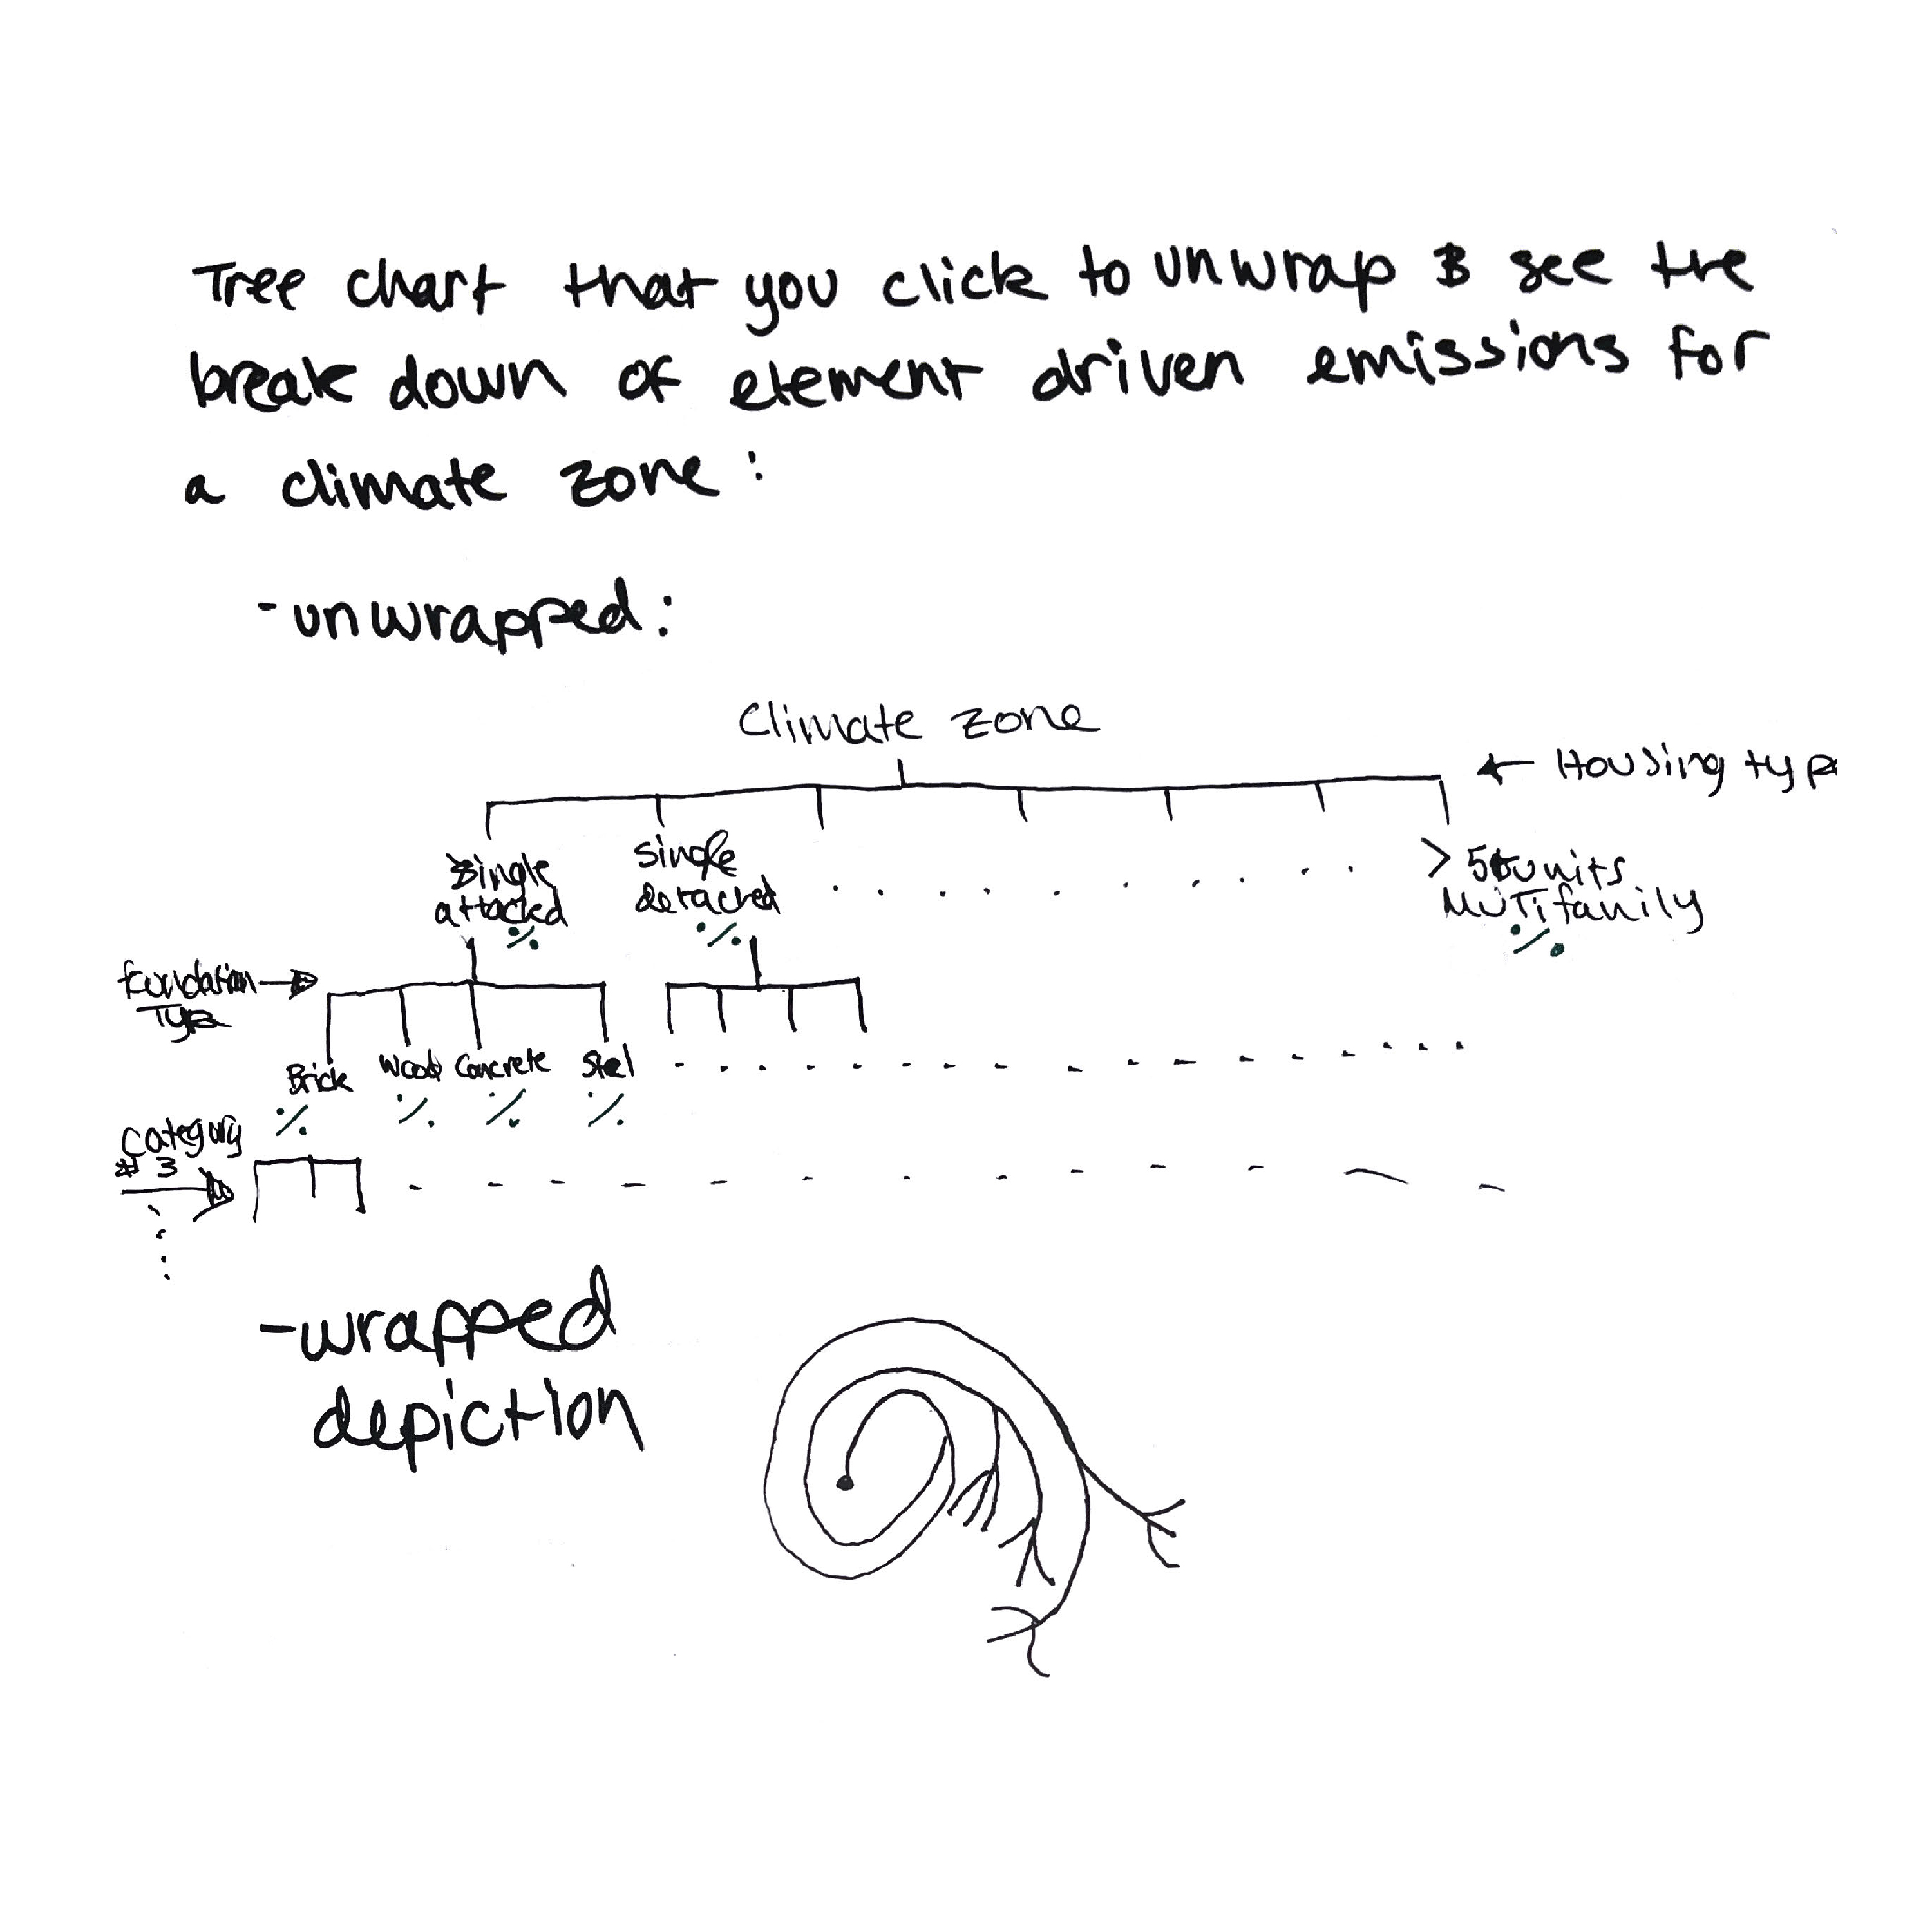 Tree chart that you click to unwrap & see the
break down of element driven emissions for
a climate zone:
-unwrapped:
Climate zone
← Housing type
Single
attached
%
Single
detached
%
> 50 units
MulTifamily
%
foundation
Type
Brick
%
Wood
%
Concrete
%
Steel
%
Category
# 3
-wrapped
depiction